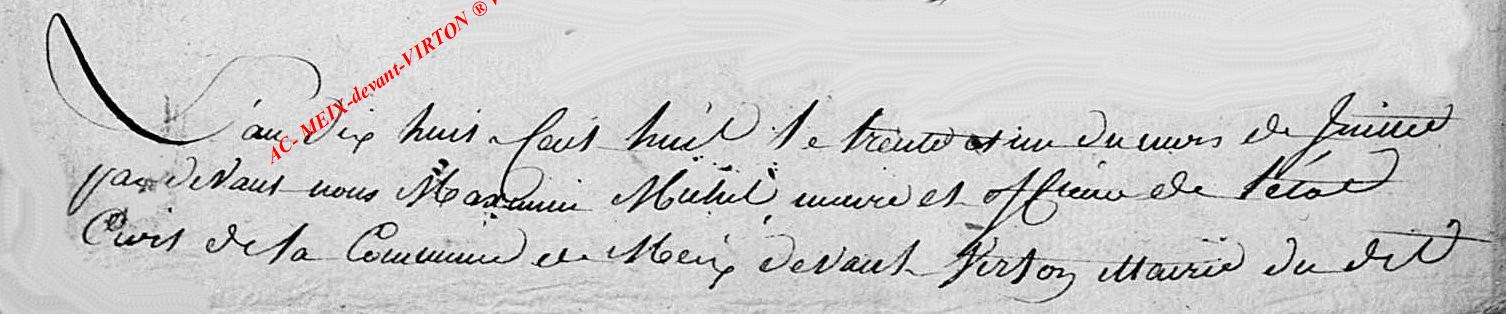 AC- MEIX-devant-VIRTON ®
L'an dix huit Cent huit le trente et un du mois de Juillet
par devant nous Maximin Michel maire et officier de l'état
Civil de la Commune de Meix devant Virton Mairie du dit